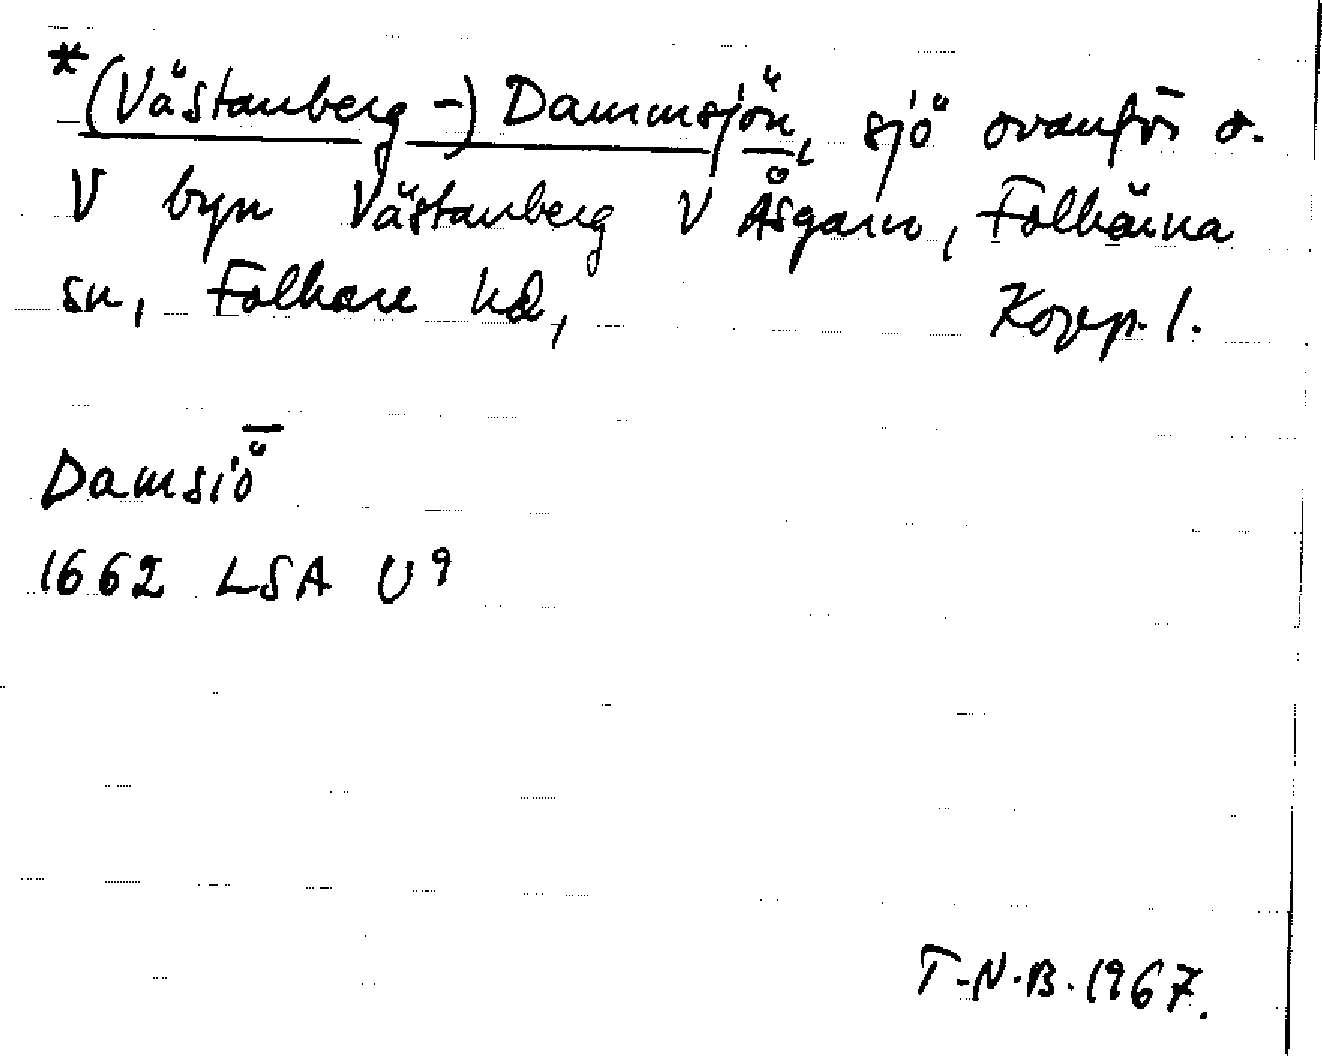 *(Västanberg-) Dammsjön, sjö ovanför o.
V byn Västanberg V Åsgarn, Folkärna
sn, Folkare hd, Kopp. l.
Damsiö
1662 LSA U9
T-N.B. 1967.